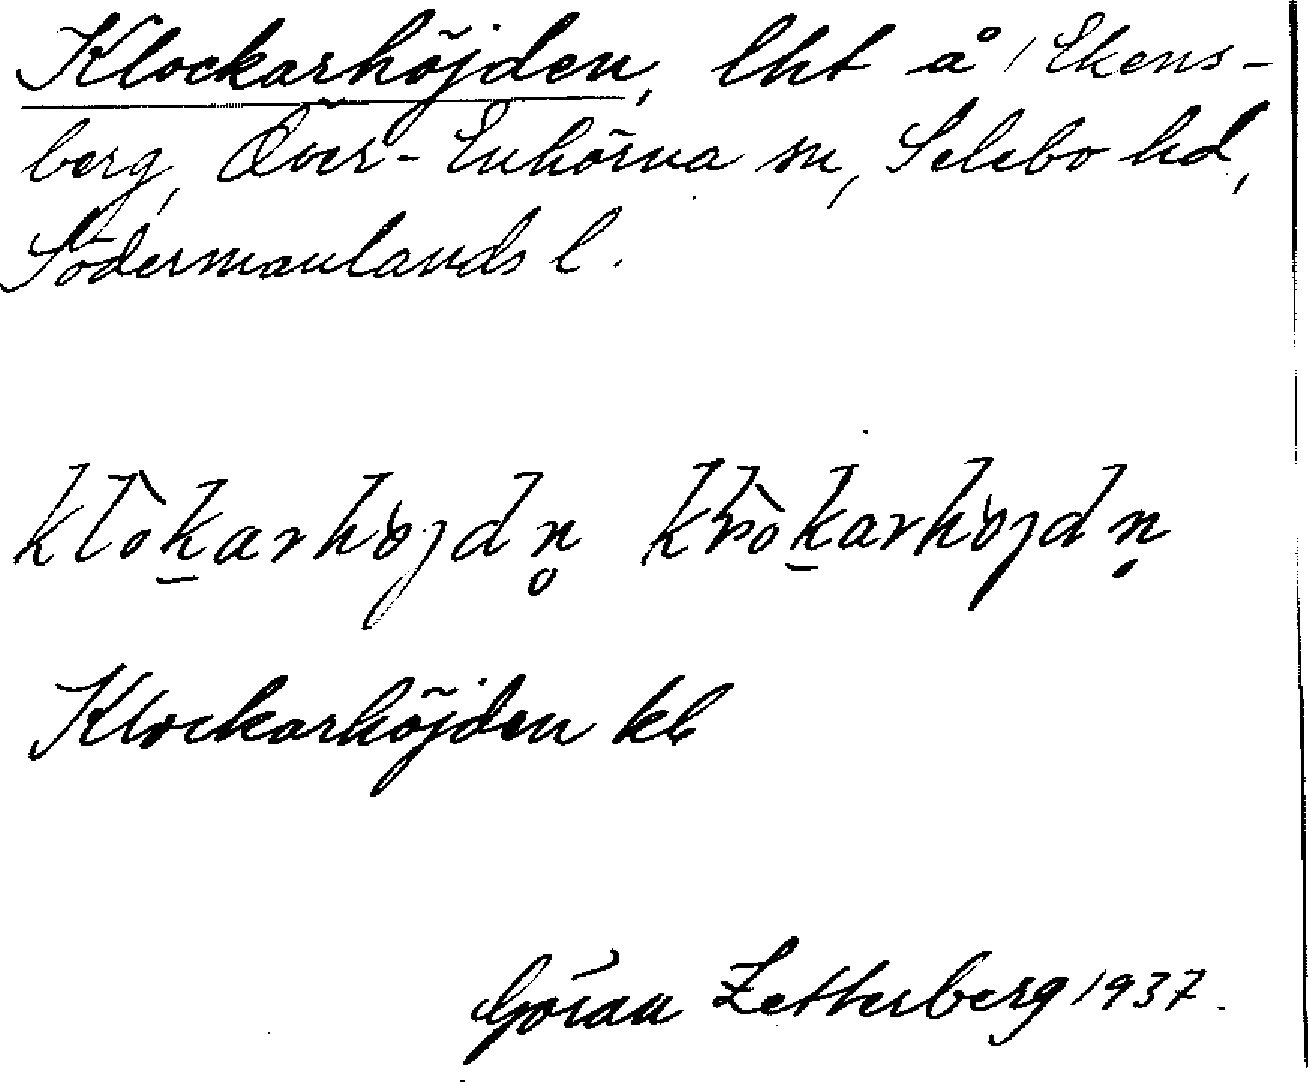 Klockarhöjden, lht å 1 Ekens-
berg, Över-Enhörna sn, Selebo hd,
Södermanlands l.
klòkarhöjdn̥ kròkarhöjdn̥
Klockarhöjden kl
Göran Zetterberg 1937.